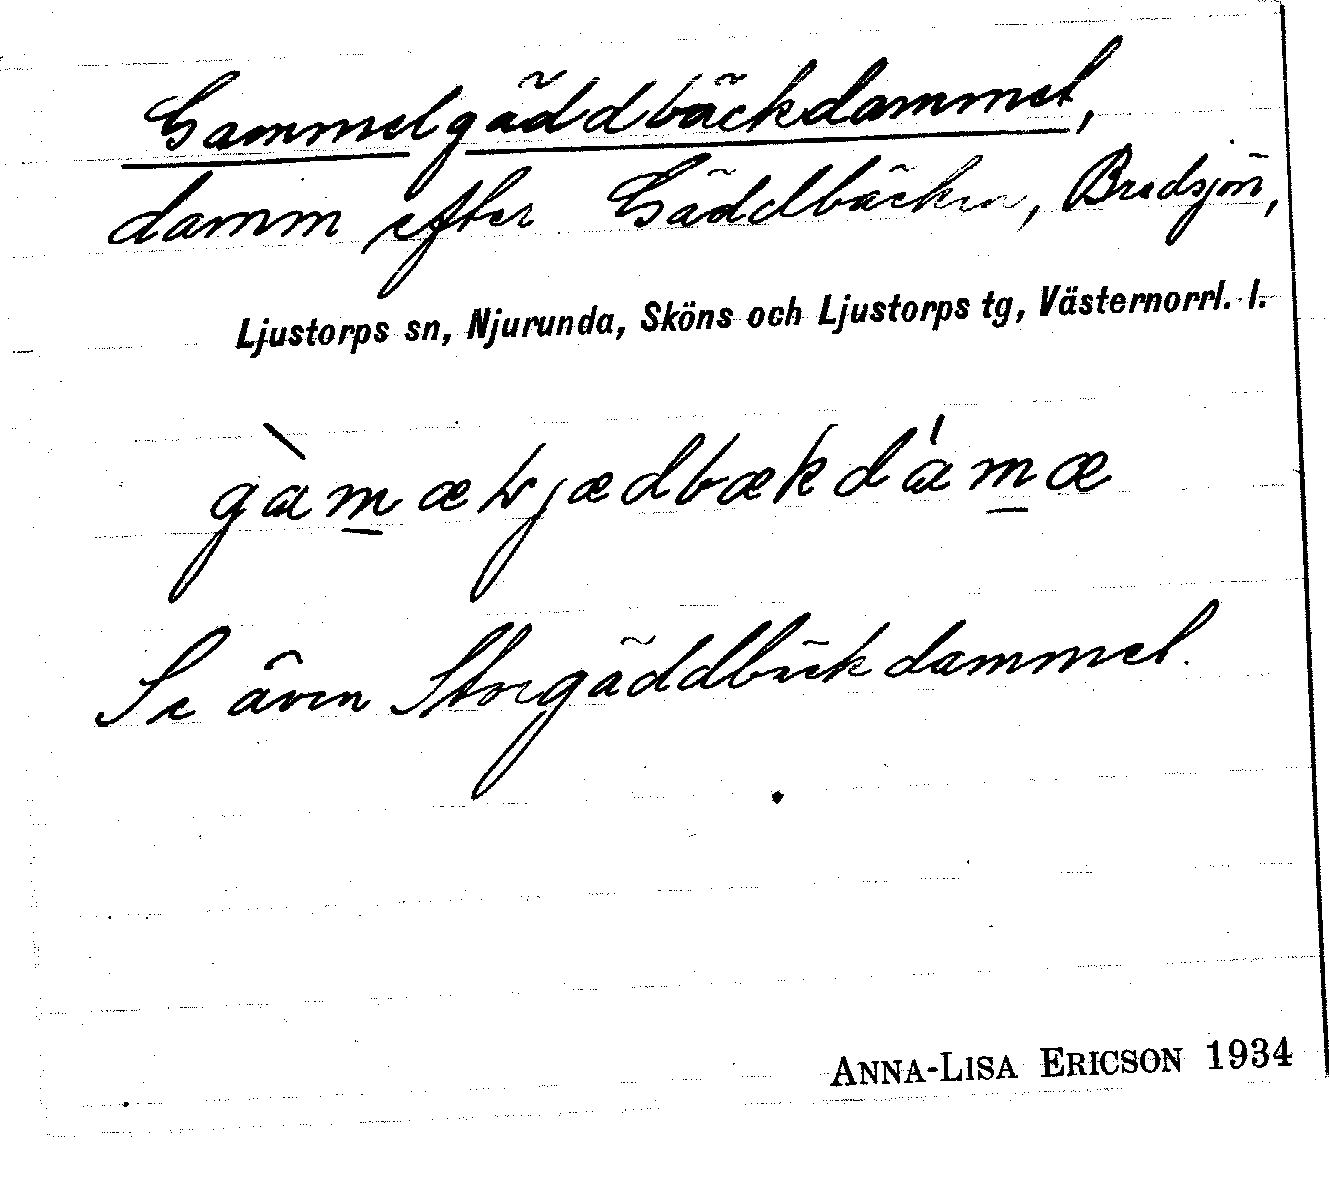 Gammelgäddbäckdammet,
damm efter Gäddbäcken, Bredsjön,
Ljustorps sn, Njurunda, Sköns och Ljustorps tg, Västernorrl. l.
gàmæljædbækdámæ
Se även Storgäddbäckdammet.
ANNA-LISA ERICSON 1934